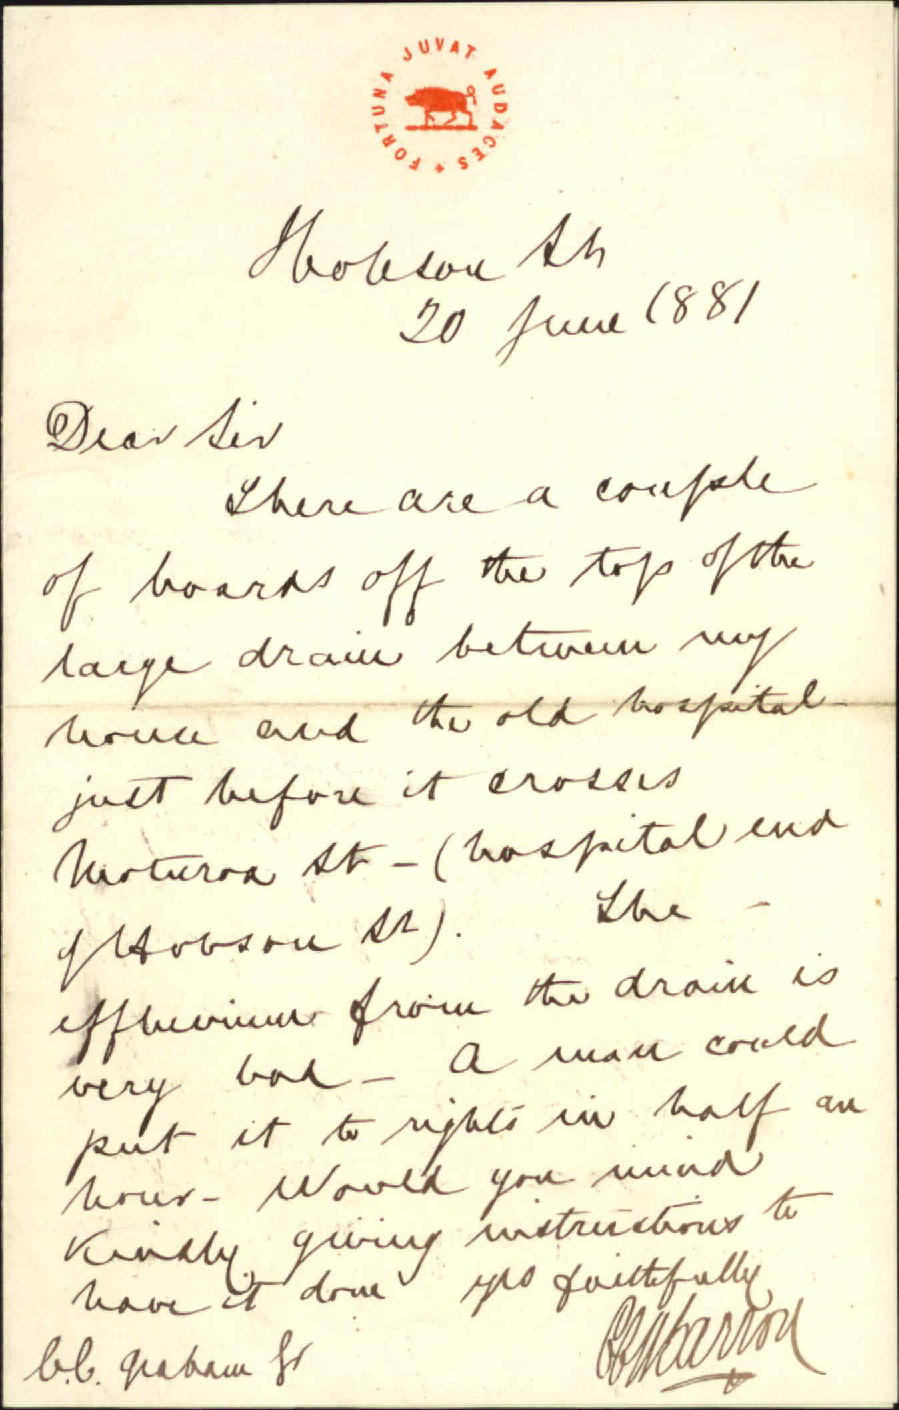 FORTUNA JUVAT AUDACES +
Hobson St
20 June 1881
Dear Sir
There are a couple
of boards off the top of the
large drain between my
house and the old hospital
just before it crosses
Moturoa St - (hospital end
of Hobson St). The -
effluvium from the drain is
very bad - A man could
put it to rights in half an
hour - Would you mind
kindly giving instructions to
have it done yrs faithfully
C.C. Graham